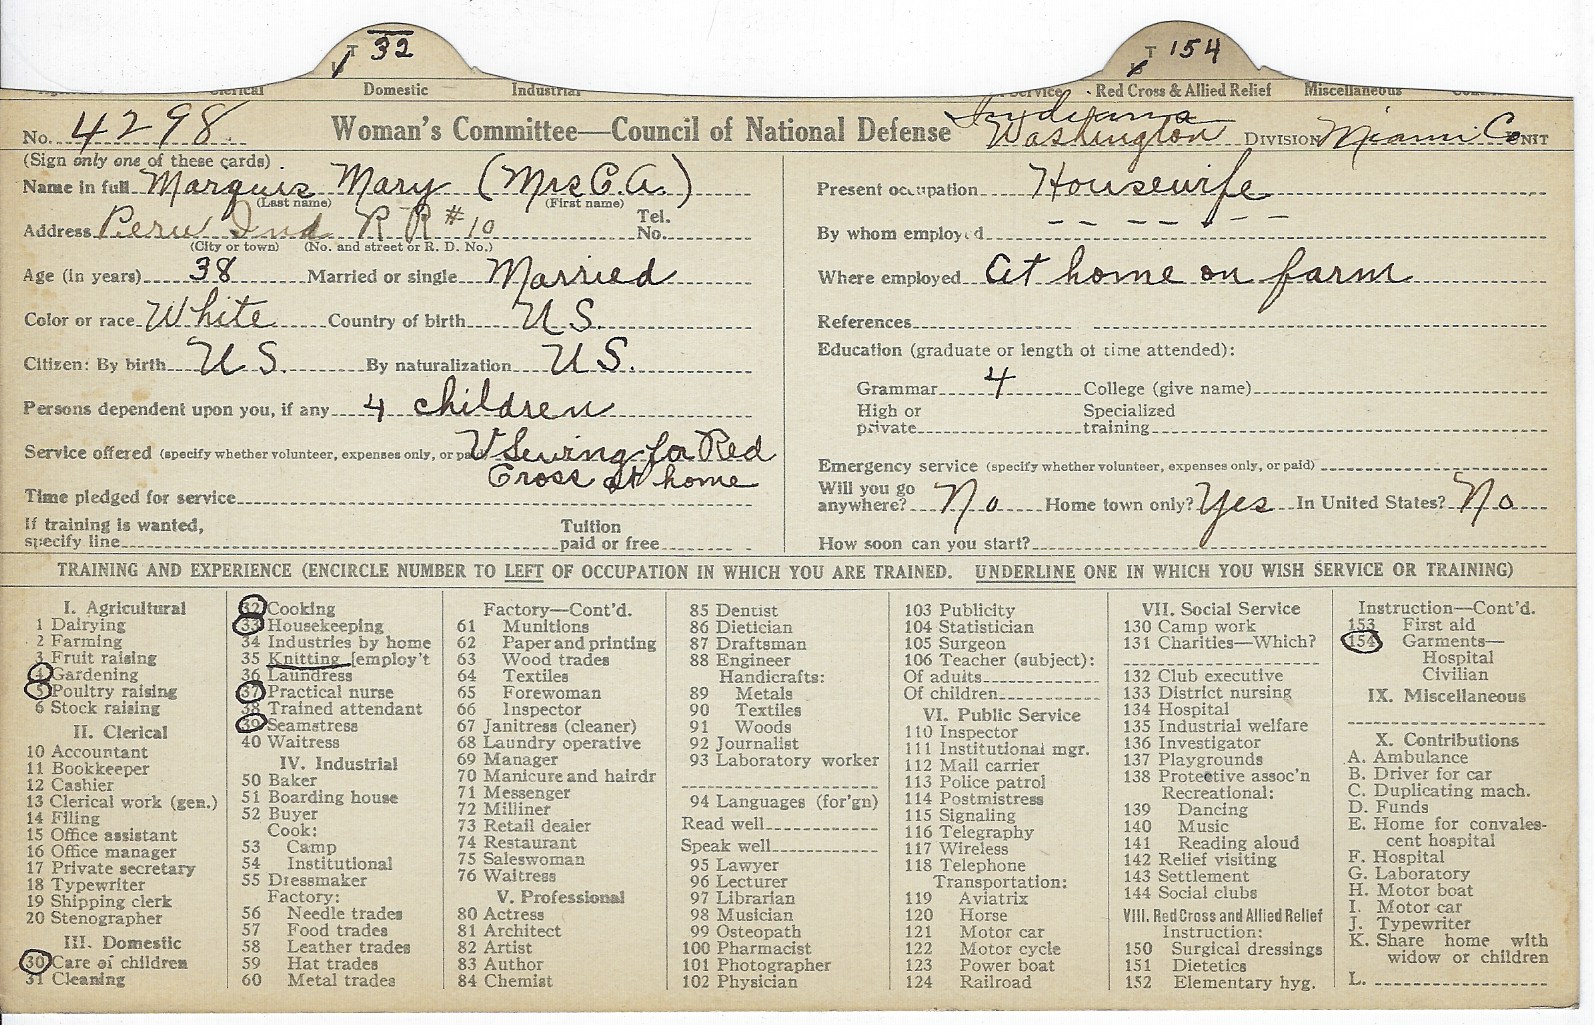 T 32
T 154
Clerical Domestic Industrial Service Red Cross & Allied Relief Miscellaneous
No. 4298 Woman's Committee—Council of National Defense Indiana Washington DIVISION Miami Co. UNIT
(Sign only one of these cards)
Name in full Marquis Mary (Mrs C.A.)
(Last name) (First name)
Address Peru Ind R R #10 Tel. No.
(City or town) (No. and street or R. D. No.)
Age (in years) 38 Married or single Married
Color or race White Country of birth U S.
Citizen: By birth U S. By naturalization U S.
Persons dependent upon you, if any 4 children
Service offered (specify whether volunteer, expenses only, or pa V Sewing for Red
Cross at home
Time pledged for service
If training is wanted,
specify line Tuition paid or free
Present occupation Housewife
By whom employed — — — — — —
Where employed At home on farm
References
Education (graduate or length of time attended):
Grammar 4 College (give name)
High or private Specialized training
Emergency service (specify whether volunteer, expenses only, or paid)
Will you go anywhere? No Home town only? Yes In United States? No
How soon can you start?
TRAINING AND EXPERIENCE (ENCIRCLE NUMBER TO LEFT OF OCCUPATION IN WHICH YOU ARE TRAINED. UNDERLINE ONE IN WHICH YOU WISH SERVICE OR TRAINING)
I. Agricultural
1 Dairying
2 Farming
3 Fruit raising
4 Gardening
5 Poultry raising
6 Stock raising
II. Clerical
10 Accountant
11 Bookkeeper
12 Cashier
13 Clerical work (gen.)
14 Filing
15 Office assistant
16 Office manager
17 Private secretary
18 Typewriter
19 Shipping clerk
20 Stenographer
III. Domestic
30 Care of children
31 Cleaning
32 Cooking
33 Housekeeping
34 Industries by home
35 Knitting [employ't
36 Laundress
37 Practical nurse
38 Trained attendant
39 Seamstress
40 Waitress
IV. Industrial
50 Baker
51 Boarding house
52 Buyer
Cook:
53 Camp
54 Institutional
55 Dressmaker
Factory:
56 Needle trades
57 Food trades
58 Leather trades
59 Hat trades
60 Metal trades
Factory—Cont'd.
61 Munitions
62 Paper and printing
63 Wood trades
64 Textiles
65 Forewoman
66 Inspector
67 Janitress (cleaner)
68 Laundry operative
69 Manager
70 Manicure and hairdr
71 Messenger
72 Milliner
73 Retail dealer
74 Restaurant
75 Saleswoman
76 Waitress
V. Professional
80 Actress
81 Architect
82 Artist
83 Author
84 Chemist
85 Dentist
86 Dietician
87 Draftsman
88 Engineer
Handicrafts:
89 Metals
90 Textiles
91 Woods
92 Journalist
93 Laboratory worker
94 Languages (for'gn)
Read well
Speak well
95 Lawyer
96 Lecturer
97 Librarian
98 Musician
99 Osteopath
100 Pharmacist
101 Photographer
102 Physician
103 Publicity
104 Statistician
105 Surgeon
106 Teacher (subject):
Of adults
Of children
VI. Public Service
110 Inspector
111 Institutional mgr.
112 Mail carrier
113 Police patrol
114 Postmistress
115 Signaling
116 Telegraphy
117 Wireless
118 Telephone
Transportation:
119 Aviatrix
120 Horse
121 Motor car
122 Motor cycle
123 Power boat
124 Railroad
VII. Social Service
130 Camp work
131 Charities—Which?
132 Club executive
133 District nursing
134 Hospital
135 Industrial welfare
136 Investigator
137 Playgrounds
138 Protective assoc'n
Recreational:
139 Dancing
140 Music
141 Reading aloud
142 Relief visiting
143 Settlement
144 Social clubs
VIII. Red Cross and Allied Relief
Instruction:
150 Surgical dressings
151 Dietetics
152 Elementary hyg.
Instruction—Cont'd.
153 First aid
154 Garments—
Hospital
Civilian
IX. Miscellaneous
X. Contributions
A. Ambulance
B. Driver for car
C. Duplicating mach.
D. Funds
E. Home for convales-
cent hospital
F. Hospital
G. Laboratory
H. Motor boat
I. Motor car
J. Typewriter
K. Share home with
widow or children
L.